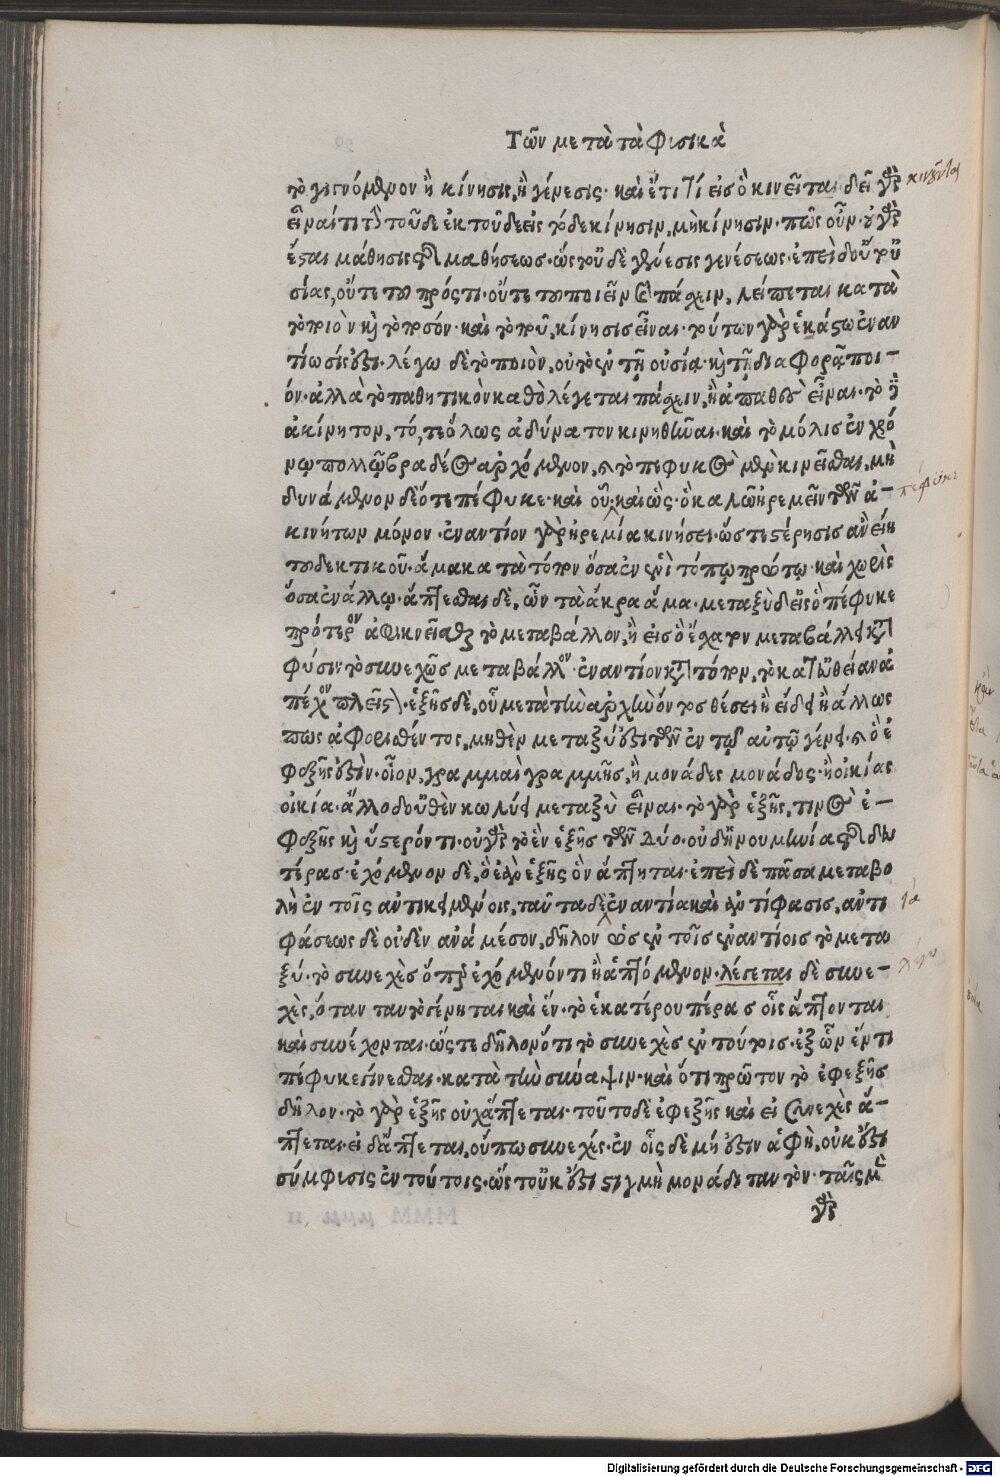 Τῶν μετὰ τὰ Φισικὰ
τὸ γιγνόμενον ἢ κίνησις, ἢ γένεσις· καὶ ἔτι τί εἰς ὃ κινεῖται· δεῖ γὰρ
κινοῦνται
εἶναί τι τὸ τοῦδε ἐκ τοῦδε εἰς τόδε κίνησιν, μὴ κίνησιν· πῶς οὖν· οὐ γὰρ
ἔσται μάθησις ἡ μαθήσεως· ὥστ' οὐδὲ γενέσεις γενέσεως· ἐπεὶ δ' οὔτ' οὐ
σίας, οὔτε τοῦ πρός τι· οὔτε τοῦ ποιεῖν καὶ πάσχειν, λείπεται κατὰ
τὸ ποιὸν καὶ τὸ ποσόν· καὶ τὸ ποῦ, κίνησις εἶναι· τούτων γὰρ ἑκάστῳ ἐναν
τίωσίς ἐστι· λέγω δὲ τὸ ποιὸν, οὐ τὸ ἐν τῇ οὐσίᾳ· καὶ τῇ διαφορᾷ ποι-
όν· ἀλλὰ τὸ παθητικὸν καθὸ λέγεται πάσχειν, ἢ ἀπαθὲς εἶναι· τὸ δὲ
ἀκίνητον, τό, τε ὅλως ἀδύνατον κινηθῆναι· καὶ τὸ μόλις ἐν χρό
νῳ πολλῷ βραδέως ἀρχόμενον, καὶ τὸ πεφυκὸς μὲν κινεῖσθαι, μὴ
δυνάμενον δὲ ὅτε πέφυκε· καὶ οὗ· καὶ ὥς· ὃ καλῶ ἠρεμεῖν τῶν ἀ-
πέφυκε
κινήτων μόνον· ἐναντίον γὰρ ἠρεμία κινήσει· ὥστε στέρησις ἂν εἴη
τοῦ δεκτικοῦ· ἅμα κατὰ τόπον ὅσα ἐν ἑνὶ τόπῳ πρώτῳ· καὶ χωρὶς
ὅσα ἐν ἄλλῳ· ἅπτεσθαι δὲ, ὧν τὰ ἄκρα ἅμα· μεταξὺ δ' εἰς ὃ πέφυκε
πρότερον ἀφικνεῖσθαι τὸ μεταβάλλον, ἢ εἰς ὃ ἔσχατον μεταβάλλει κατὰ
φύσιν τὸ συνεχῶς μεταβάλλον· ἐναντίον κατὰ τόπον, τὸ κατ' εὐθεῖαν ἀ
πέχον πλεῖστον· ἑξῆς δὲ, οὗ μετὰ τὴν ἀρχὴν ὄντος θέσει ἢ εἴδει ἢ ἄλλως
πως ἀφορισθέντος, μηθὲν μεταξύ ἐστι τῶν ἐν τῷ αὐτῷ γένει καὶ ὃ ἐ
φεξῆς ἐστὶν· οἷον, γραμμαὶ γραμμῆς, ἢ μονάδες μονάδος· ἢ οἰκίας
οἰκία· ἄλλο δ' οὐθὲν κωλύει μεταξὺ εἶναι· τὸ γὰρ ἑξῆς, τινὸς ἐ-
φεξῆς καὶ ὕστερόν τι· οὐ γὰρ τὸ ἓν ἑξῆς τῶν δύο· οὐδ' ἡ νουμηνία τῆς δευ
τέρας· ἐχόμενον δὲ, ὃ ἐφ' ἑξῆς ὂν ἅπτηται· ἐπεὶ δὲ πᾶσα μεταβο
λὴ ἐν τοῖς ἀντικειμένοις, ταῦτα δὲ ἐναντία καὶ ἀντίφασις, ἀντι
τὰ
φάσεως δὲ οὐδὲν ἀνὰ μέσον, δῆλον ὡς ἐν τοῖς ἐναντίοις τὸ μετα
ξύ· τὸ συνεχὲς ὅπερ ἐχόμενόν τι ἢ ἁπτόμενον· λέγεται δὲ συνε-
λέγω
χὲς, ὅταν ταυτὸ γένηται καὶ ἓν· τὸ ἑκατέρου πέρας οἷς ἅπτονται
καὶ συνέχονται· ὥστε δῆλον ὅτι τὸ συνεχὲς ἐν τούτοις· ἐξ ὧν ἕν τι
πέφυκε γίνεσθαι· κατὰ τὴν σύναψιν· καὶ ὅτι πρῶτον τὸ ἐφεξῆς
δῆλον· τὸ γὰρ ἑξῆς οὐχ ἅπτεται· τοῦτο δὲ ἐφεξῆς καὶ εἰ συνεχὲς ἅ-
πτεται· εἰ δ' ἅπτεται, οὔπω συνεχές· ἐν οἷς δὲ μή ἐστιν ἁφὴ, οὐκ ἔστι
σύμφισις ἐν τούτοις· ὥστ' οὐκ ἔστι στιγμὴ μονάδι ταυτὸν· ταῖς μὲν
γὰρ
Digitalisierung gefördert durch die Deutsche Forschungsgemeinschaft - DFG